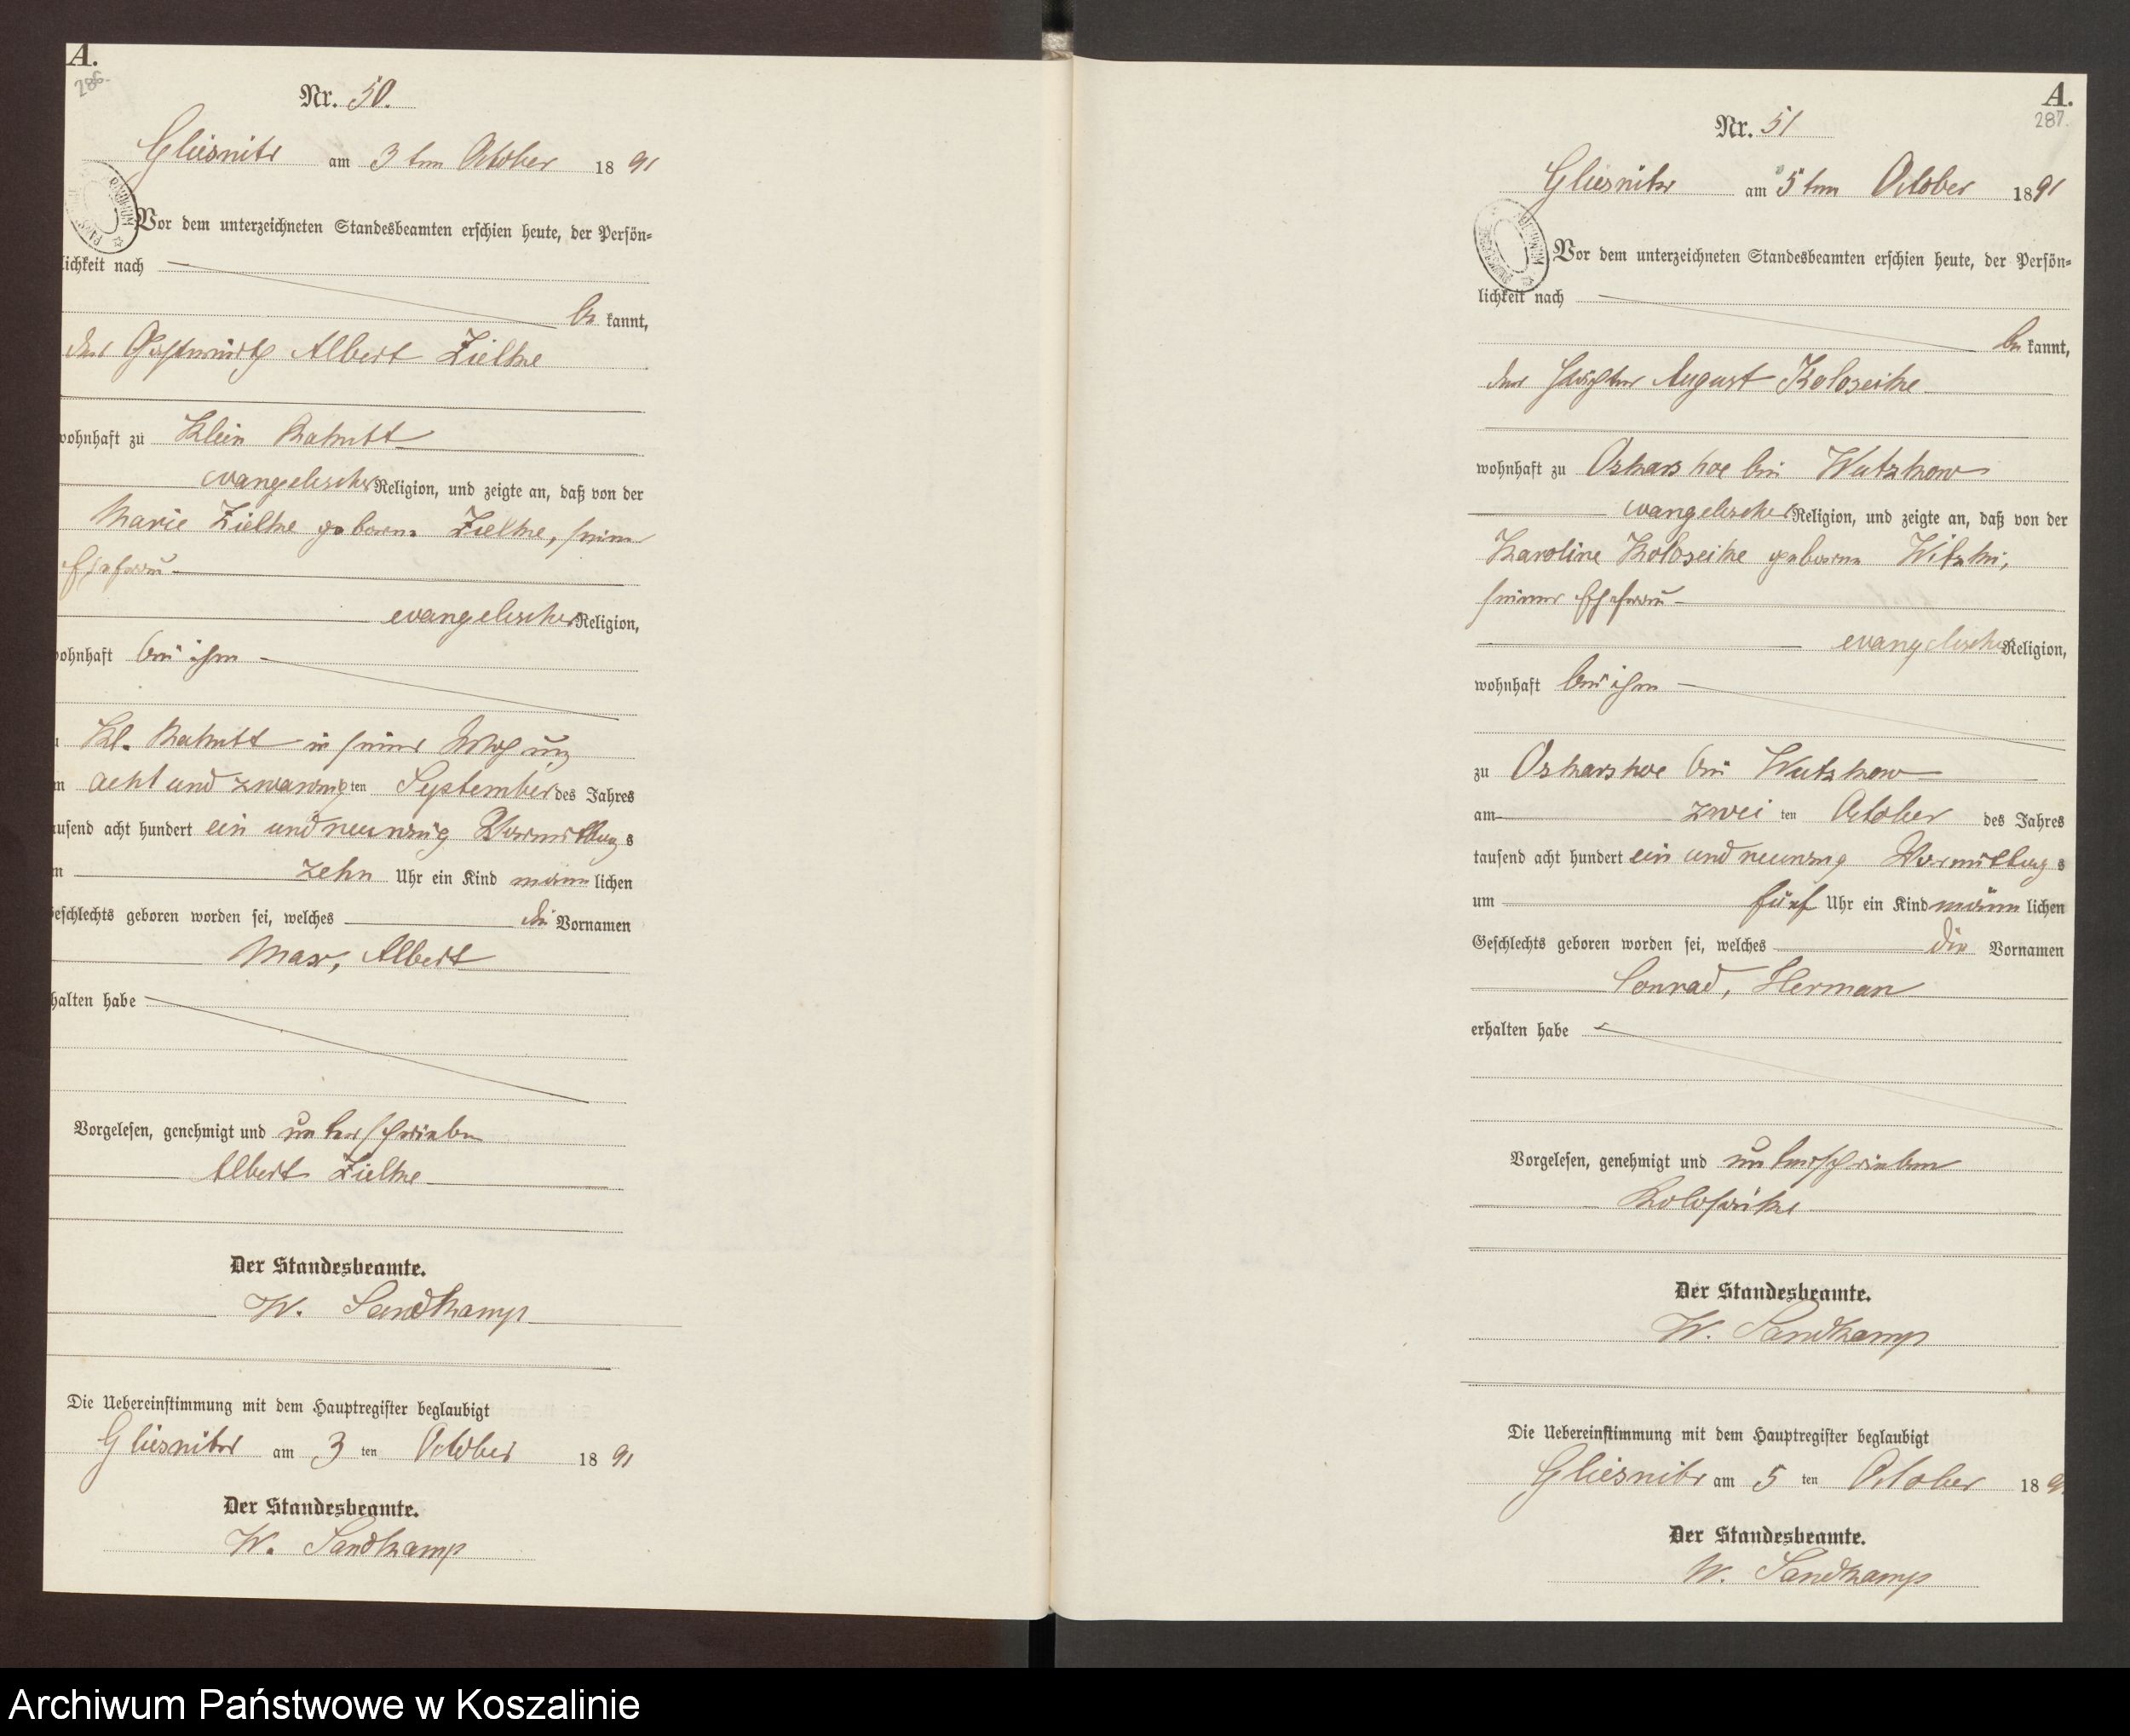 A.
286.
Nr. 50.
Gliesnitz am 3ten October 1891
Vor dem unterzeichneten Standesbeamten erschien heute, der Persön-
lichkeit nach
be kannt,
der Gastwirth Albert Zielke
wohnhaft zu Klein Rakitt
evangelischer Religion, und zeigte an, daß von der
Marie Zielke geborne Zielke, seiner
Ehefrau
evangelischer Religion,
wohnhaft bei ihm
Kl. Rakitt in seiner Wohnung
acht und zwanzig ten September des Jahres
tausend acht hundert ein und neunzig Vormittag s
zehn Uhr ein Kind männ lichen
Geschlechts geboren worden sei, welches die Vornamen
Max, Albert
halten habe
Vorgelesen, genehmigt und unterschrieben
Albert Zielke
Der Standesbeamte.
W. Sandkamp
Die Uebereinstimmung mit dem Hauptregister beglaubigt
Gliesnitz am 3 ten October 1891
Der Standesbeamte.
W. Sandkamp
A.
287.
Nr. 51
Gliesnitz am 5ten October 1891
Vor dem unterzeichneten Standesbeamten erschien heute, der Persön-
lichkeit nach
be kannt,
der August Koloseike
wohnhaft zu Oskarshoe bei Wutzkow
evangelischer Religion, und zeigte an, daß von der
Karoline Koloseike geborne Witzki,
seiner Ehefrau
evangelischer Religion,
wohnhaft bei ihm
zu Oskarshoe bei Wutzkow
am zwei ten October des Jahres
tausend acht hundert ein und neunzig Vormittag s
um fünf Uhr ein Kind männ lichen
Geschlechts geboren worden sei, welches die Vornamen
Conrad, Herman
erhalten habe
Vorgelesen, genehmigt und unterschrieben
Koloseike
Der Standesbeamte.
W. Sandkamp
Die Uebereinstimmung mit dem Hauptregister beglaubigt
Gliesnitz am 5 ten October 189
Der Standesbeamte.
W. Sandkamp
Archiwum Państwowe w Koszalinie